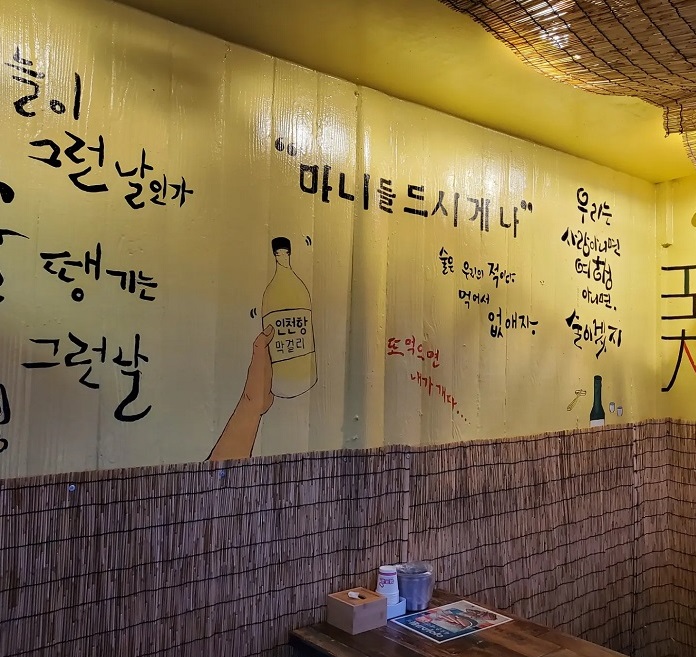 늘이
그런 날인가
땡기는
그런날
“마니들 드시게나”
인천항
막걸리
술은 우리의 적이다
먹어서
없애자
또 먹으면
내가 개다...
우리는
사랑아니면
여행
아니면
술이겠지